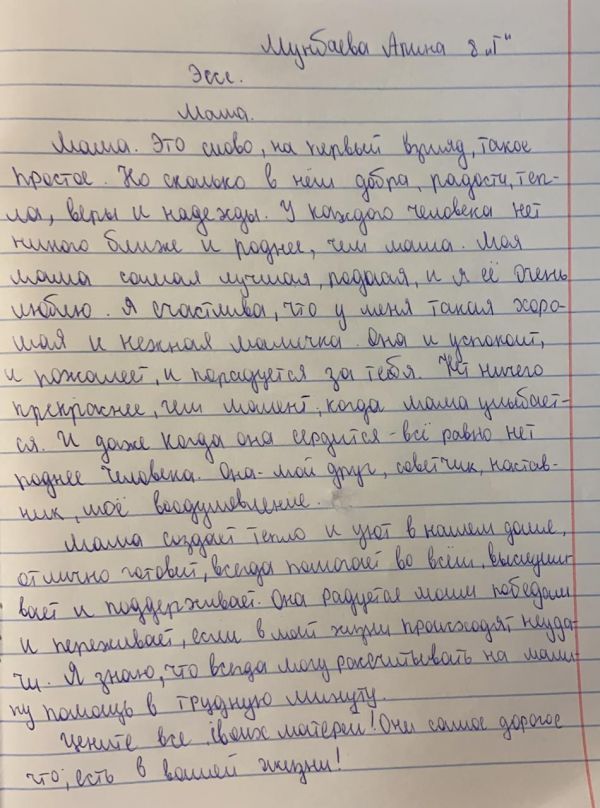 Мунбаева Алина 8 „Г"
Эссе.
Мама.
Мама. Это слово, на первый взгляд, такое
простое. Но сколько в нём добра, радости, теп-
ла, веры и надежды. У каждого человека нет
никого ближе и роднее, чем мама. Моя
мама самая лучшая, родная, и я её очень
люблю. Я счастлива, что у меня такая хоро-
шая и нежная мамичка. Она и успокоит,
и пожалеет, и порадуется за тебя. Нет ничего
прекраснее, чем момент, когда мама улыбает-
ся. И даже когда она сердится - всё равно нет
роднее человека. Она - мой друг, советчик, настав-
ник, моё воодушевление.
Мама создаёт тепло и уют в нашем доме,
отлично готовит, всегда помогает во всём, выслуши-
вает и поддерживает. Она радуется моим победам
и переживает, если в моей жизни происходят неуда-
чи. Я знаю, что всегда могу рассчитывать на мами-
ну помощь в трудную минуту.
Цените все своих матерей! Они самое дорогое
что, есть в вашей жизни!